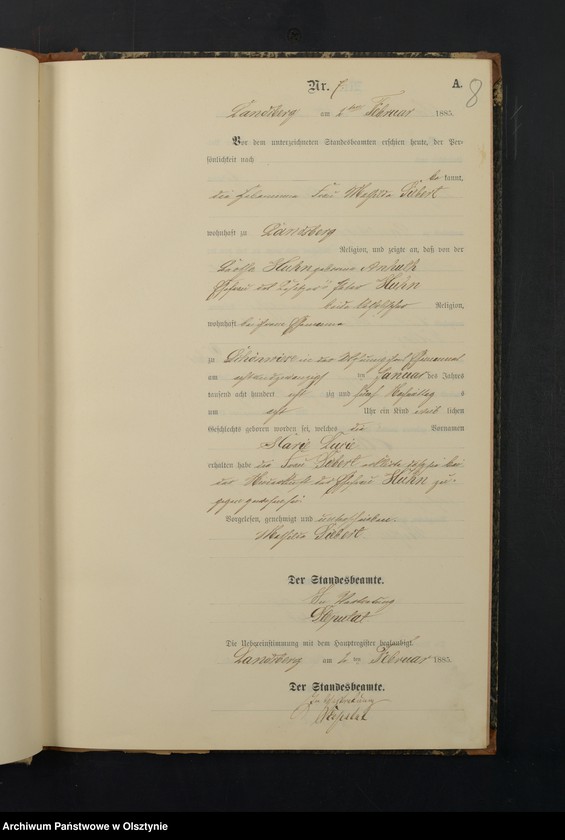 Nr. 7
A.
8
Landsberg am 2ten Februar 1885.
Vor dem unterzeichneten Standesbeamten erschien heute, der Per-
sönlichkeit nach
be kannt,
die Hebamme Frau Mathilde
wohnhaft zu Landsberg
Religion, und zeigte an, daß von der
Huhn geborene
Ehefrau des Besitzers Huhn
beide katholischer Religion,
wohnhaft bei ihrem Ehemanne
zu in der Wohnung des Ehemannes
am achtundzwanzigsten ten Januar des Jahres
tausend acht hundert acht zig und fünf Vormittags
um acht Uhr ein Kind weib lichen
Geschlechts geboren worden sei, welches die Vornamen
Marie
erhalten habe die Frau erklärte, daß sie bei
der Niederkunft der Ehefrau Huhn zu-
gegen gewesen sei.
Vorgelesen, genehmigt und unterschrieben
Mathilde
Der Standesbeamte.
In Vertretung
Die Uebereinstimmung mit dem Hauptregister beglaubigt.
Landsberg am 2 ten Februar 1885.
Der Standesbeamte.
In Vertretung
Archiwum Państwowe w Olsztynie